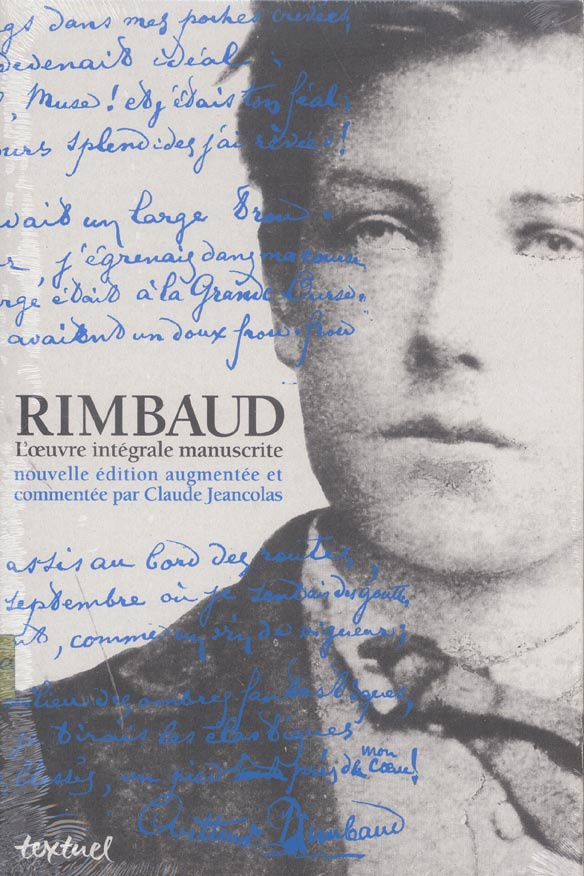 gs dans mes poches crevées;
devenait idéal;
, Muse! et j'étais ton féal;
ours splendides j'ai rêvées!
vait un large trou.
r j'égrenais dans ma course
rge était à la Grande Ourse.
avaient un doux frou-frou
RIMBAUD
L'œuvre intégrale manuscrite
nouvelle édition augmentée et
commentée par Claude Jeancolas
assis au bord des routes,
septembre où je sentais des gouttes
nt, comme un vin de vigueur;
milieu des ombres fantastiques,
je tirais les élastiques
blessés, un pied près de mon cœur!
Arthur Rimbaud
textuel